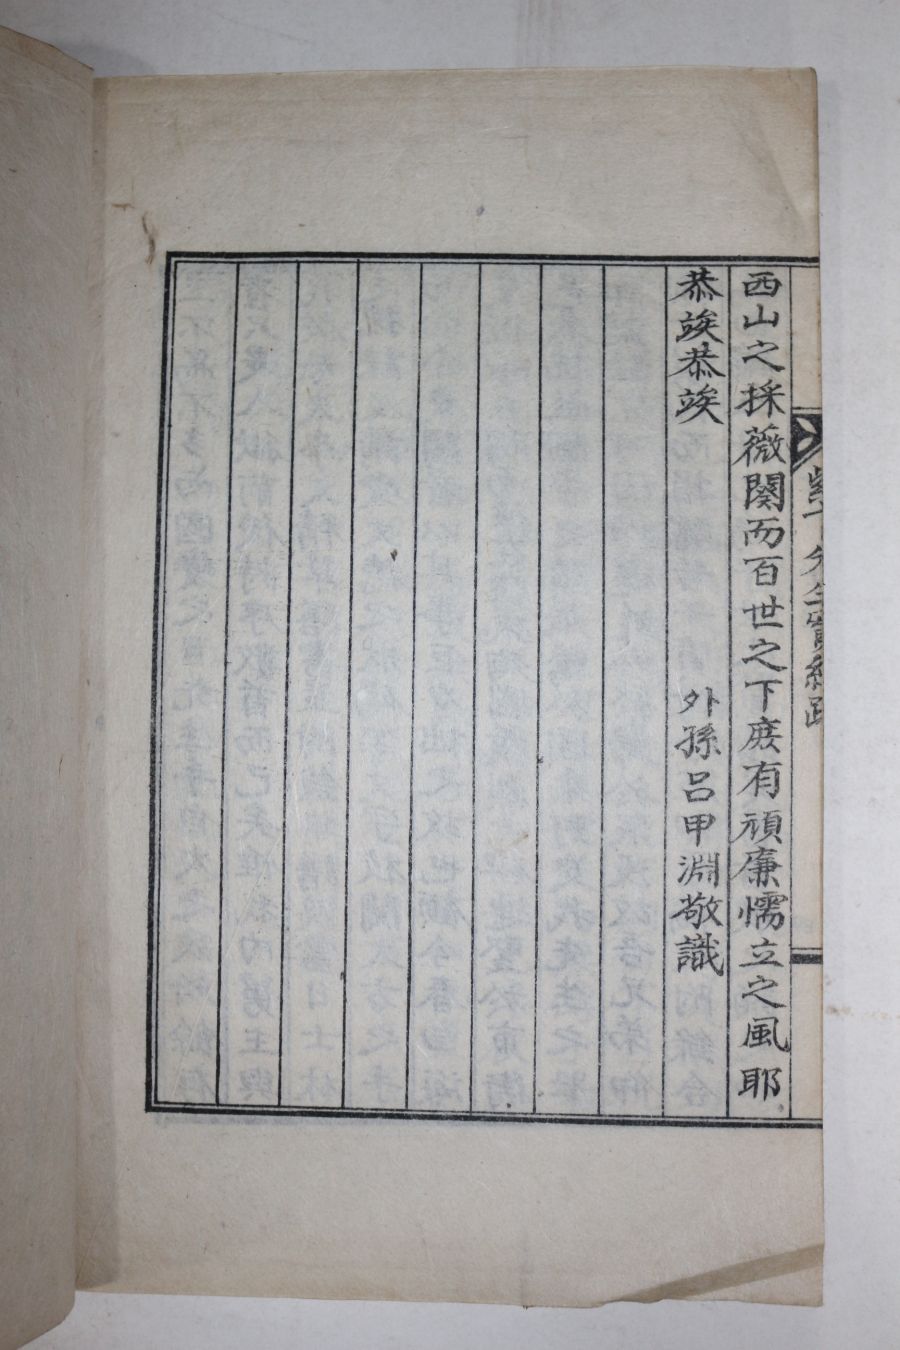 西山之採薇闋而百世之下庶有頑廉懦立之風耶
恭竢恭竢
外孫呂甲淵敬識